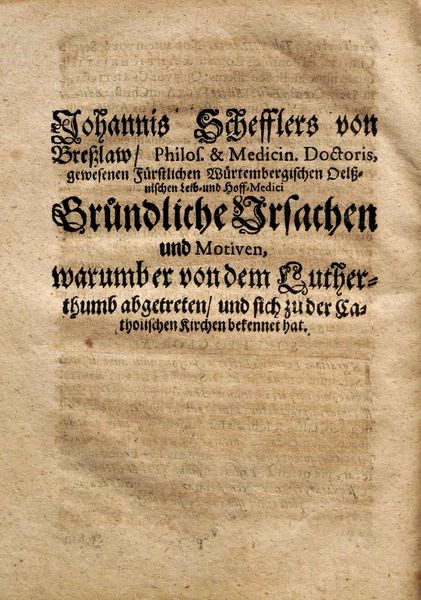 Johannis Schefflers von
Breßlaw/ Philos. & Medicin. Doctoris,
gewesenen Fürstlichen Würtembergischen Oelß-
nischen Leib-und Hoff-Medici
Gründliche Ursachen
und Motiven,
warumb er von dem Luther-
thumb abgetreten/ und sich zu der Ca-
tholischen Kirchen bekennet hat.